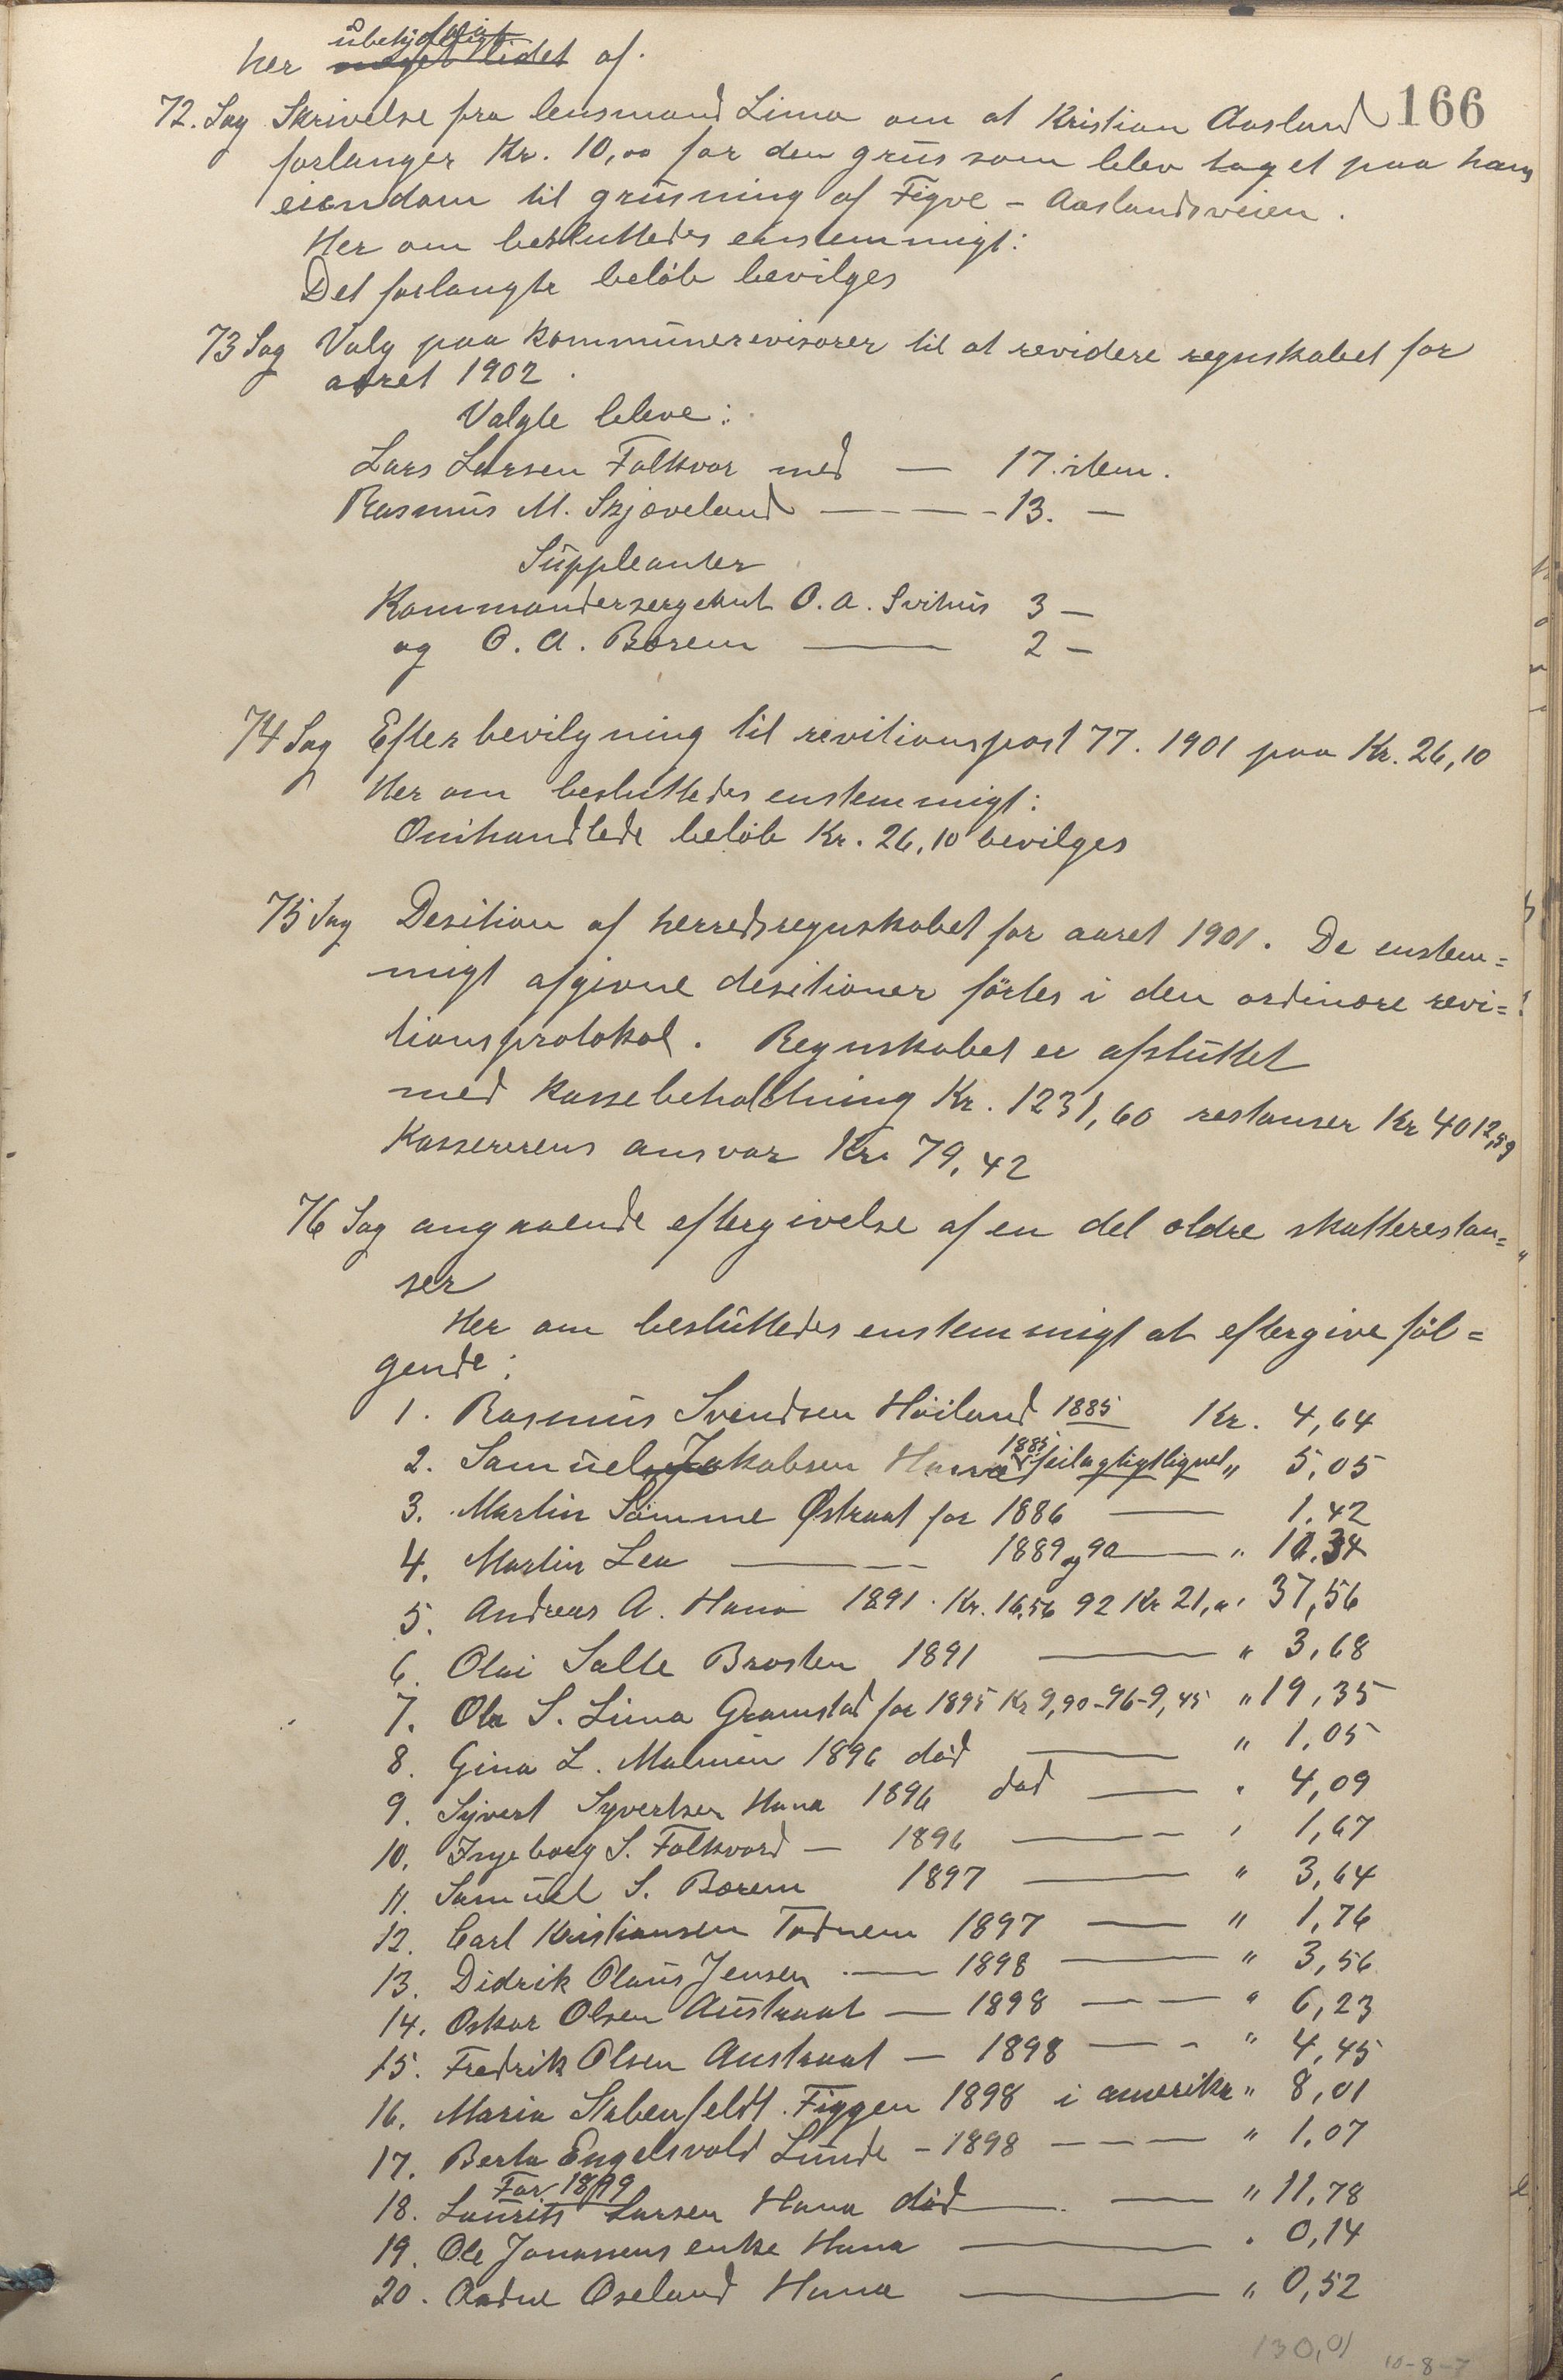 her ubehjælpeligt meget lidet af.
166
72. Sag Skrivelse fra lensmand Lima om at Kristian Aasland
forlanger Kr. 10,00 for den grus som blev taget paa hans
eiendom til grusning af Figve - Aaslandsveien.
Her om besluttedes enstemmigt:
Det forlangte beløb bevilges
73 Sag Valg paa kommunerevisorer til at revidere regnskabet for
aaret 1902.
Valgte bleve:
Lars Larsen Folkvor med — 17. stem.
Rasmus M. Skjæveland — — — 13. —
Suppleanter
Kommandersergeant O. A. Svihus 3 —
og O. A. Bærem — 2 —
74 Sag Efterbevilgning til revitionspost 77. 1901 paa Kr. 26,10
Her om besluttedes enstemmigt:
Omhandlede beløb Kr. 26,10 bevilges
75 Sag Desition af herredsregnskabet for aaret 1901. De enstem=
migt afgivne desitioner førtes i den ordinære revi=
tionsprotokol. Regnskabet er afsluttet
med kassebeholdning Kr. 1231,60 restanser Kr 4012,59
Kassererens ansvar Kr. 79,42
76 Sag angaaende eftergivelse af en del ældre skatterestan=
ser
Her om besluttedes enstemmigt at eftergive føl=
gende:
1. Rasmus Svendsen Høiland 1885 Kr. 4,64
2. Samuel Jakobsen Hana 1885 feilagtigt lignet " 5,05
3. Martin Sømme Østraat for 1886 — 1,42
4. Martin Lea — — 1889 og 90 — " 10.34
5. Andreas A. Hana 1891. Kr. 16,56 92 Kr 21,00 " 37,56
6. Olai Salte Brosten 1891 — " 3,68
7. Ola S. Lima Gramstad for 1895 Kr 9,90 - 96 - 9,45 " 19,35
8. Gina L. Malmin 1896 død — " 1,05
9. Sivert Syvertsen Hana 1896 død — " 4,09
10. Ingeborg S. Folkvord — 1896 — — " 1,67
11. Samuel S. Bærem 1897 — " 3,64
12. Carl Kristiansen Todnem 1897 — " 1,76
13. Didrik Olaus Jensen — 1898 — " 3,56
14. Oskar Olsen Austraat — 1898 — — " 6,23
15. Fredrik Olsen Austraat — 1898 — - " 4,45
16. Maria Stabenfeldt. Figgen 1898 i amerika " 8,01
17. Berta Engelsvold Lunde - 1898 — — — " 1,07
For 1899
18. Laurits Larsen Hana død — . — " 11,78
19. Ole Jonassens enke Hana — " 0,14
20. Aadne Oseland Hana — " 0,52
130,01
10-8-7